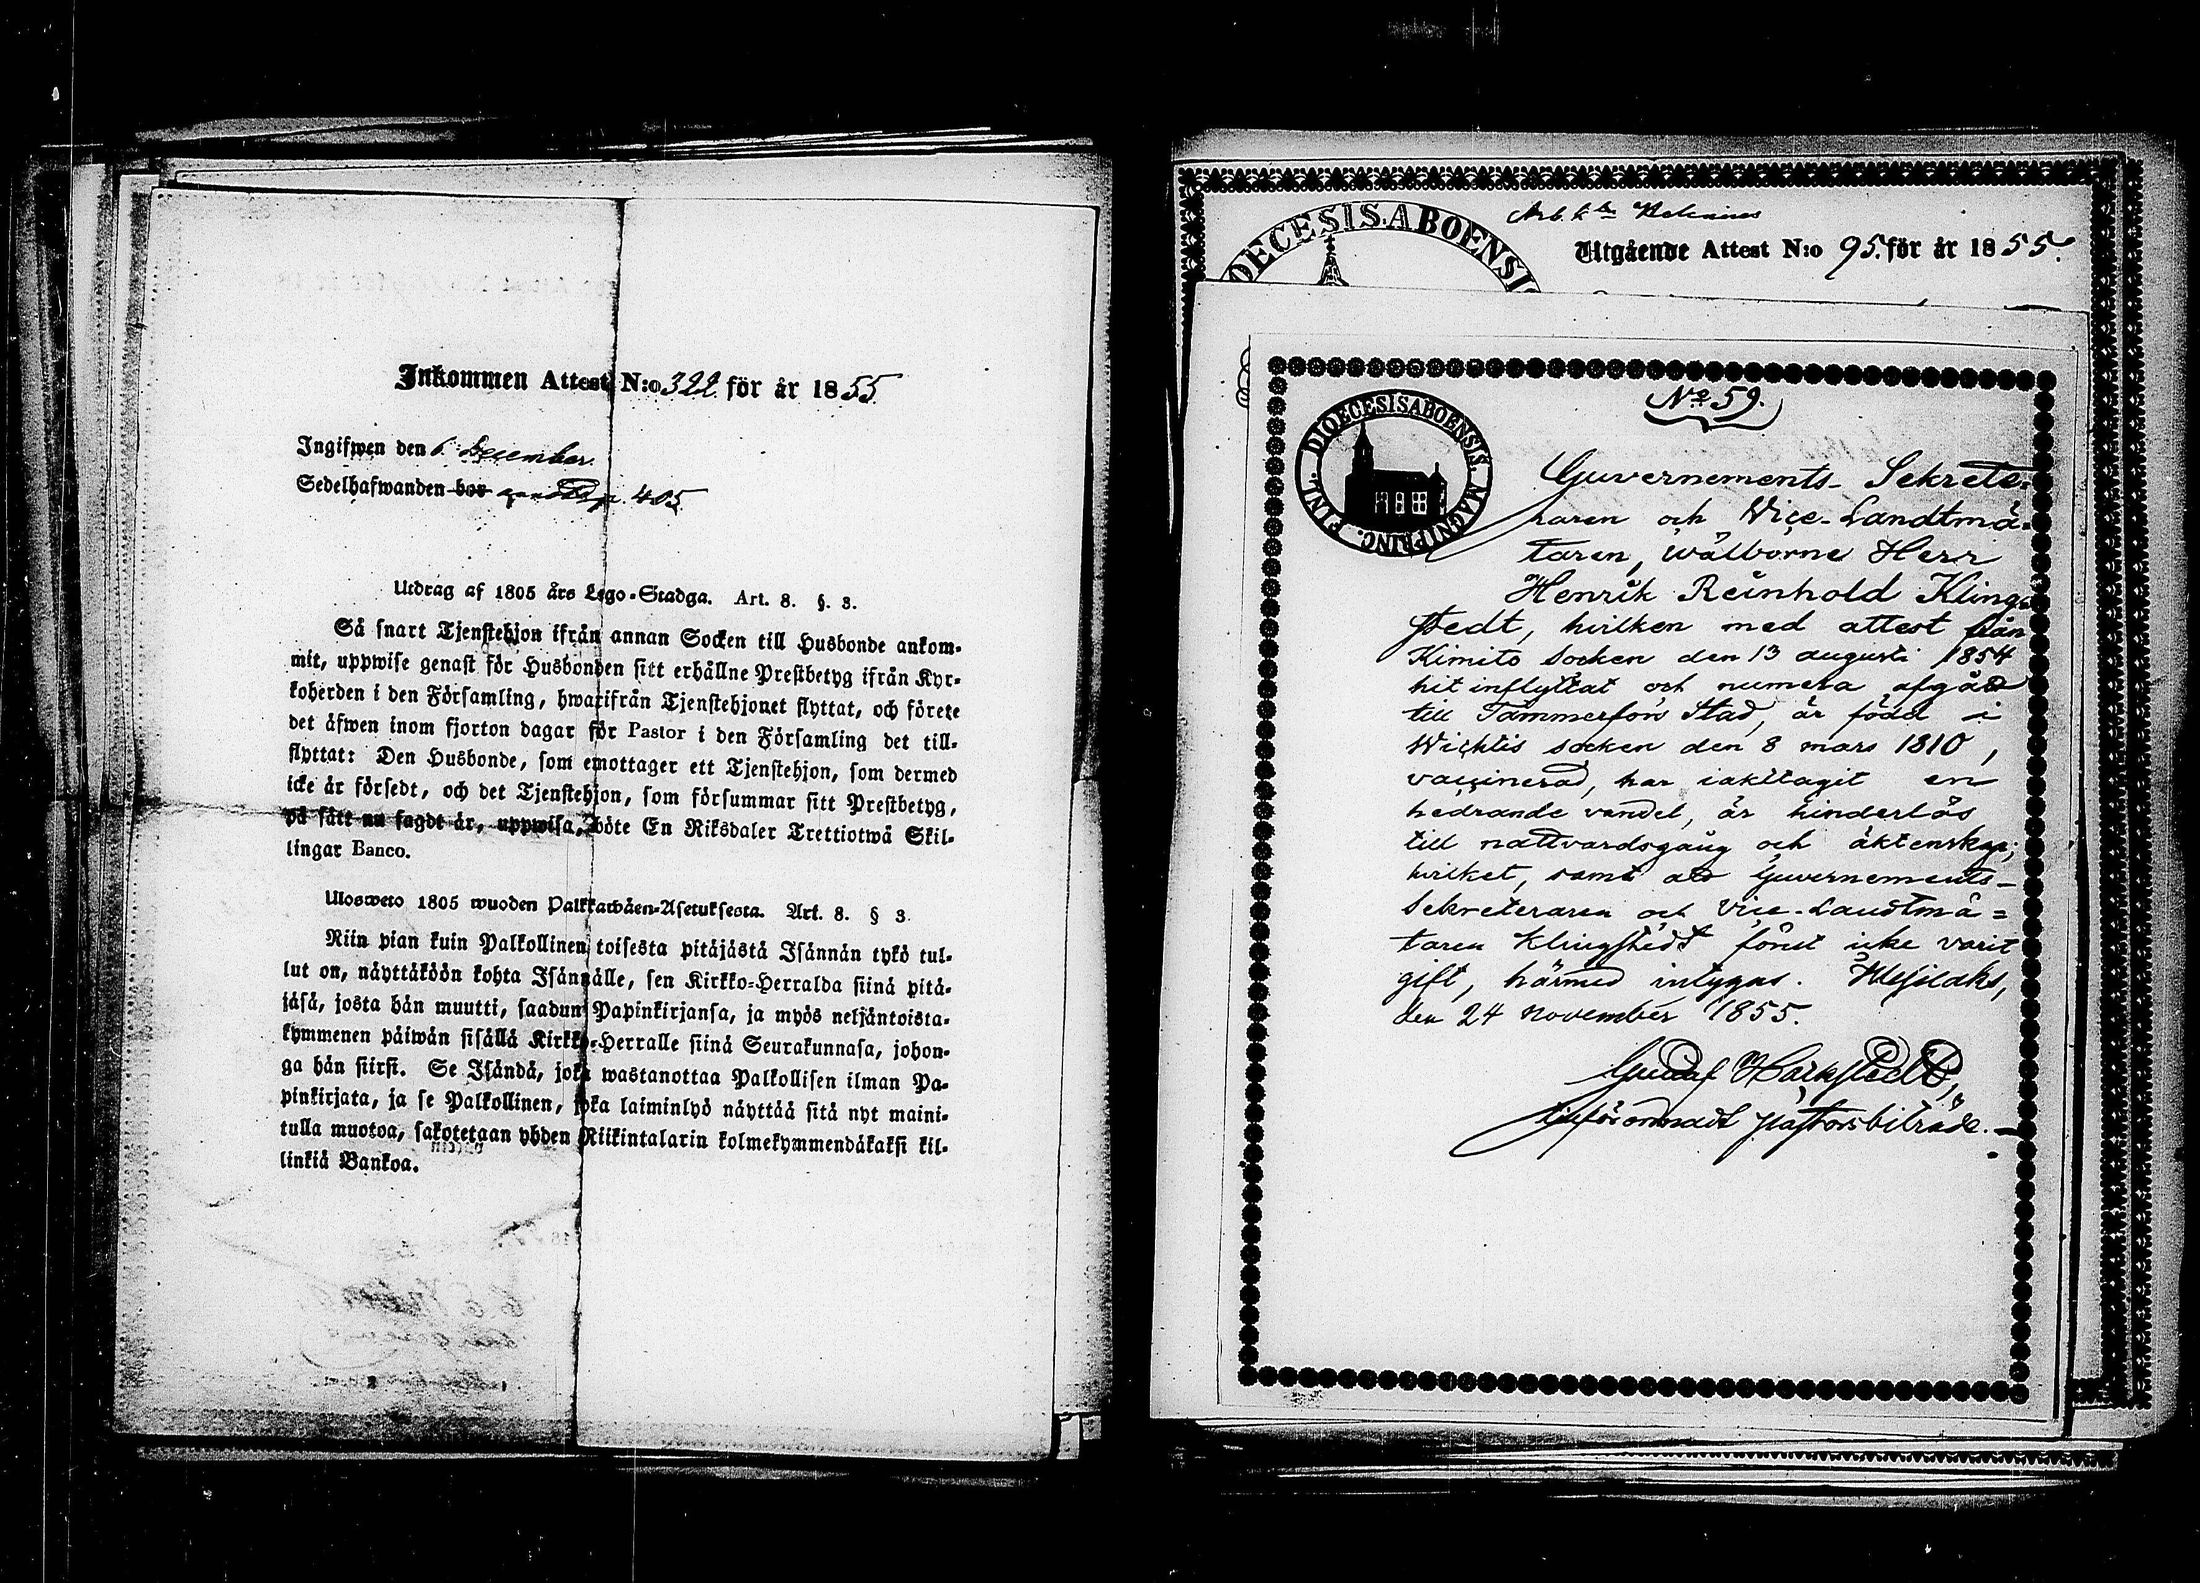 Inkommen Attest N:o 322 för år 1855
Ingifwen den 6 December
Sedelhafwanden bor p. 405
Utdrag af 1805 års Lego-Stadga. Art. 8. §. 3.
Så snart Tjenstehjon ifrån annan Socken till Husbonde ankom-
mit, uppwise genast för Husbonden sitt erhållne Prestbetyg ifrån Kyr-
koherden i den Församling, hwarifrån Tjenstehjonet flyttat, och förete
det äfwen inom fjorton dagar för Pastor i den Församling det till-
flyttat: Den Husbonde, som emottager ett Tjenstehjon, som dermed
icke är försedt, och det Tjenstehjon, som försummar sitt Prestbetyg,
på sätt nu sagdt är, uppwisa, böte En Riksdaler Trettiotwå Skil-
lingar Banco.
Ulosweto 1805 wuoden Palkkawäen-Asetuksesta. Art. 8. § 3.
Niin pian kuin Palkollinen toisesta pitäjästä Isännän tykö tul-
lut on, näyttäköön kohta Isännälle, sen Kirkko-Herralda siinä pitä-
jäsä, josta hän muutti, saadun Papinkirjansa, ja myös neljäntoista-
kymmenen päiwän sisällä Kirkko-Herralle siinä Seurakunnasa, johon-
ga hän siirsi. Se Isändä, joka wastanottaa Palkollisen ilman Pa-
pinkirjata, ja se Palkollinen, joka laiminlyö näyttää sitä nyt maini-
tulla muotoa, sakotetaan yhden Riikintalarin kolmekymmendäkaksi kil-
linkiä Bankoa.
DIOECESIS ABOENSIS
Utgående Attest N:o 95. för år 1855.
DIOECESIS ABOENSIS. MAGNI PRINC. FINL.
No 59.
Guvernements-Sekrete-
raren och Vice-Landtmä-
taren, wälborne Herr
Henrik Reinhold Kling-
stedt, hvilken med attest från
Kimito Socken den 13 augusti 1854
hit inflyttat och numera afgår
till Tammerfors Stad, är född i
Wichtis socken den 8 mars 1810,
vaccinerad, har iakttagit en
hedrande vandel, är hinderlös
till nattvardsgång och äktenskap;
hvilket, samt att Guvernements-
Sekreteraren och Vice-Landtmä-
taren Klingstedt förut icke varit
gift, härmed intygas.
den 24 November 1855.
pastorsbiträde.